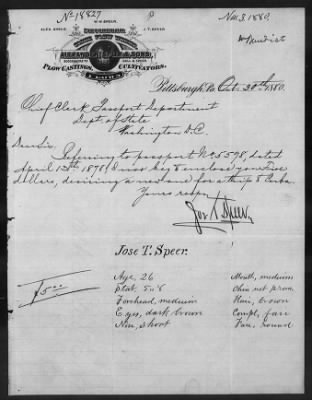 No 18827
Nov. 3, 1880.
W. W. SPEER.
ALEX. SPEER.
J. T. SPEER.
& SONS,
PLOW CASTINGS,
CULTIVATORS,
Pittsburgh, Pa Oct. 30th 1880.
Chief Clerk Passport Department
Dept. of State
Washington D.C.
Dear Sir:
Referring to passport No. 5598, dated
April 13th 1878, I now beg to enclose you Five
dollars, desiring a new one for a trip to Cuba.
Yours resp.
Jos T. Speer.
JOSE T. SPEER.
$5.00
Age, 26
Stat. 5 - 8
Forehead, medium
Eyes, dark brown
Nose, short
Mouth, medium
Chin not prom.
Hair, brown
Compl, fair
Face, round